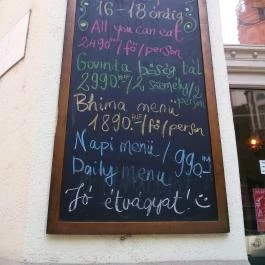 16-18 óráig
All you can eat
2490 HUF/fő/person
Govinda bőség tál
2990 HUF/2 személy/2 person
Bhima menü
1890 HUF/fő/person
Napi menü/990 HUF
Daily menu
Jó étvágyat!